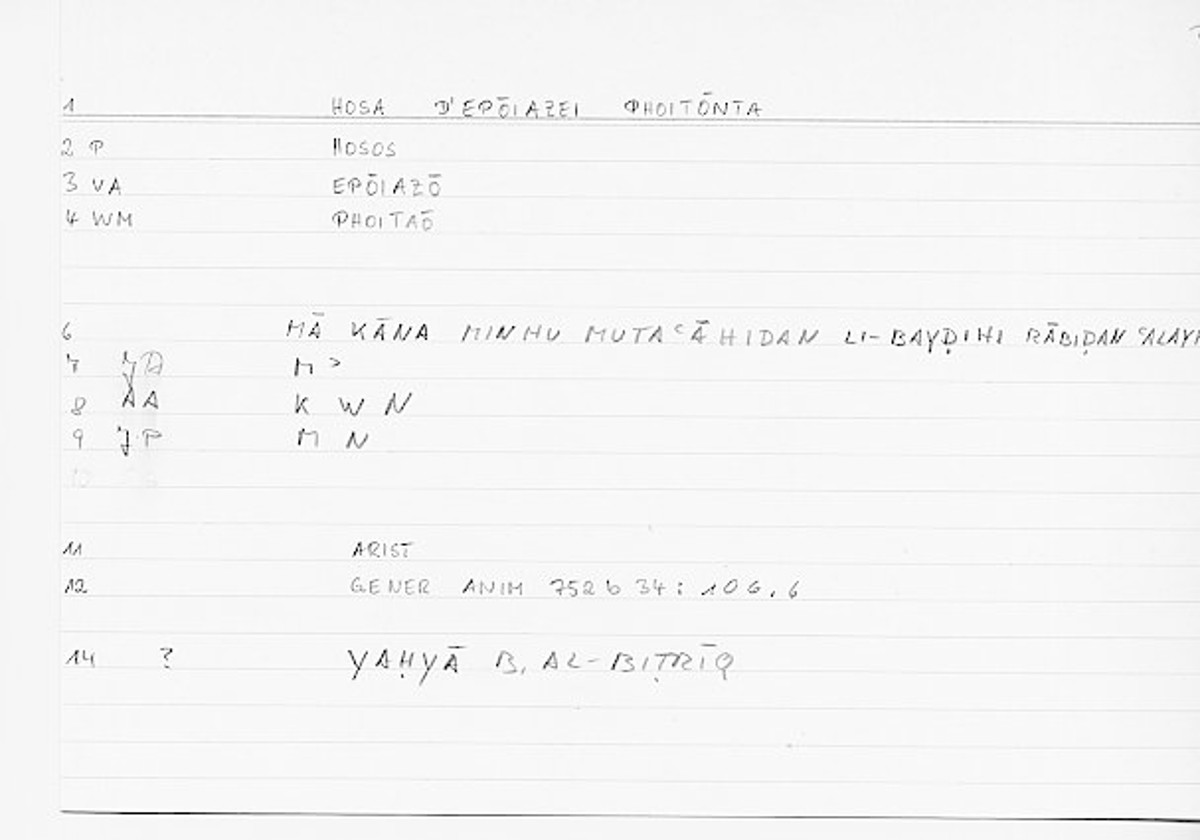 1 HOSA D'EPŌIAZEI PHOITŌNTA
2 P HOSOS
3 VA EPŌIAZŌ
4 WM PHOITAŌ
6 MĀ KĀNA MINHU MUTAʿĀHIDAN LI-BAYḌIHI RĀBIḌAN
7 M ʾ
8 AA K W N
9 JP M N
10
11 ARIST
12 GENER ANIM 752 b 34 : 106,6
14 ? YAḤYĀ B. AL-BIṬRĪQ